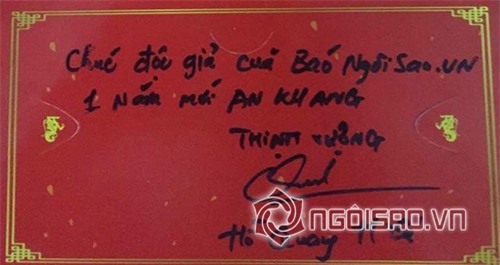 Chúc độc giả của Báo Ngôi Sao.VN
1 Năm mới AN KHANG
THỊNH VƯỢNG
NGÔISAO.VN
Hồ Quang